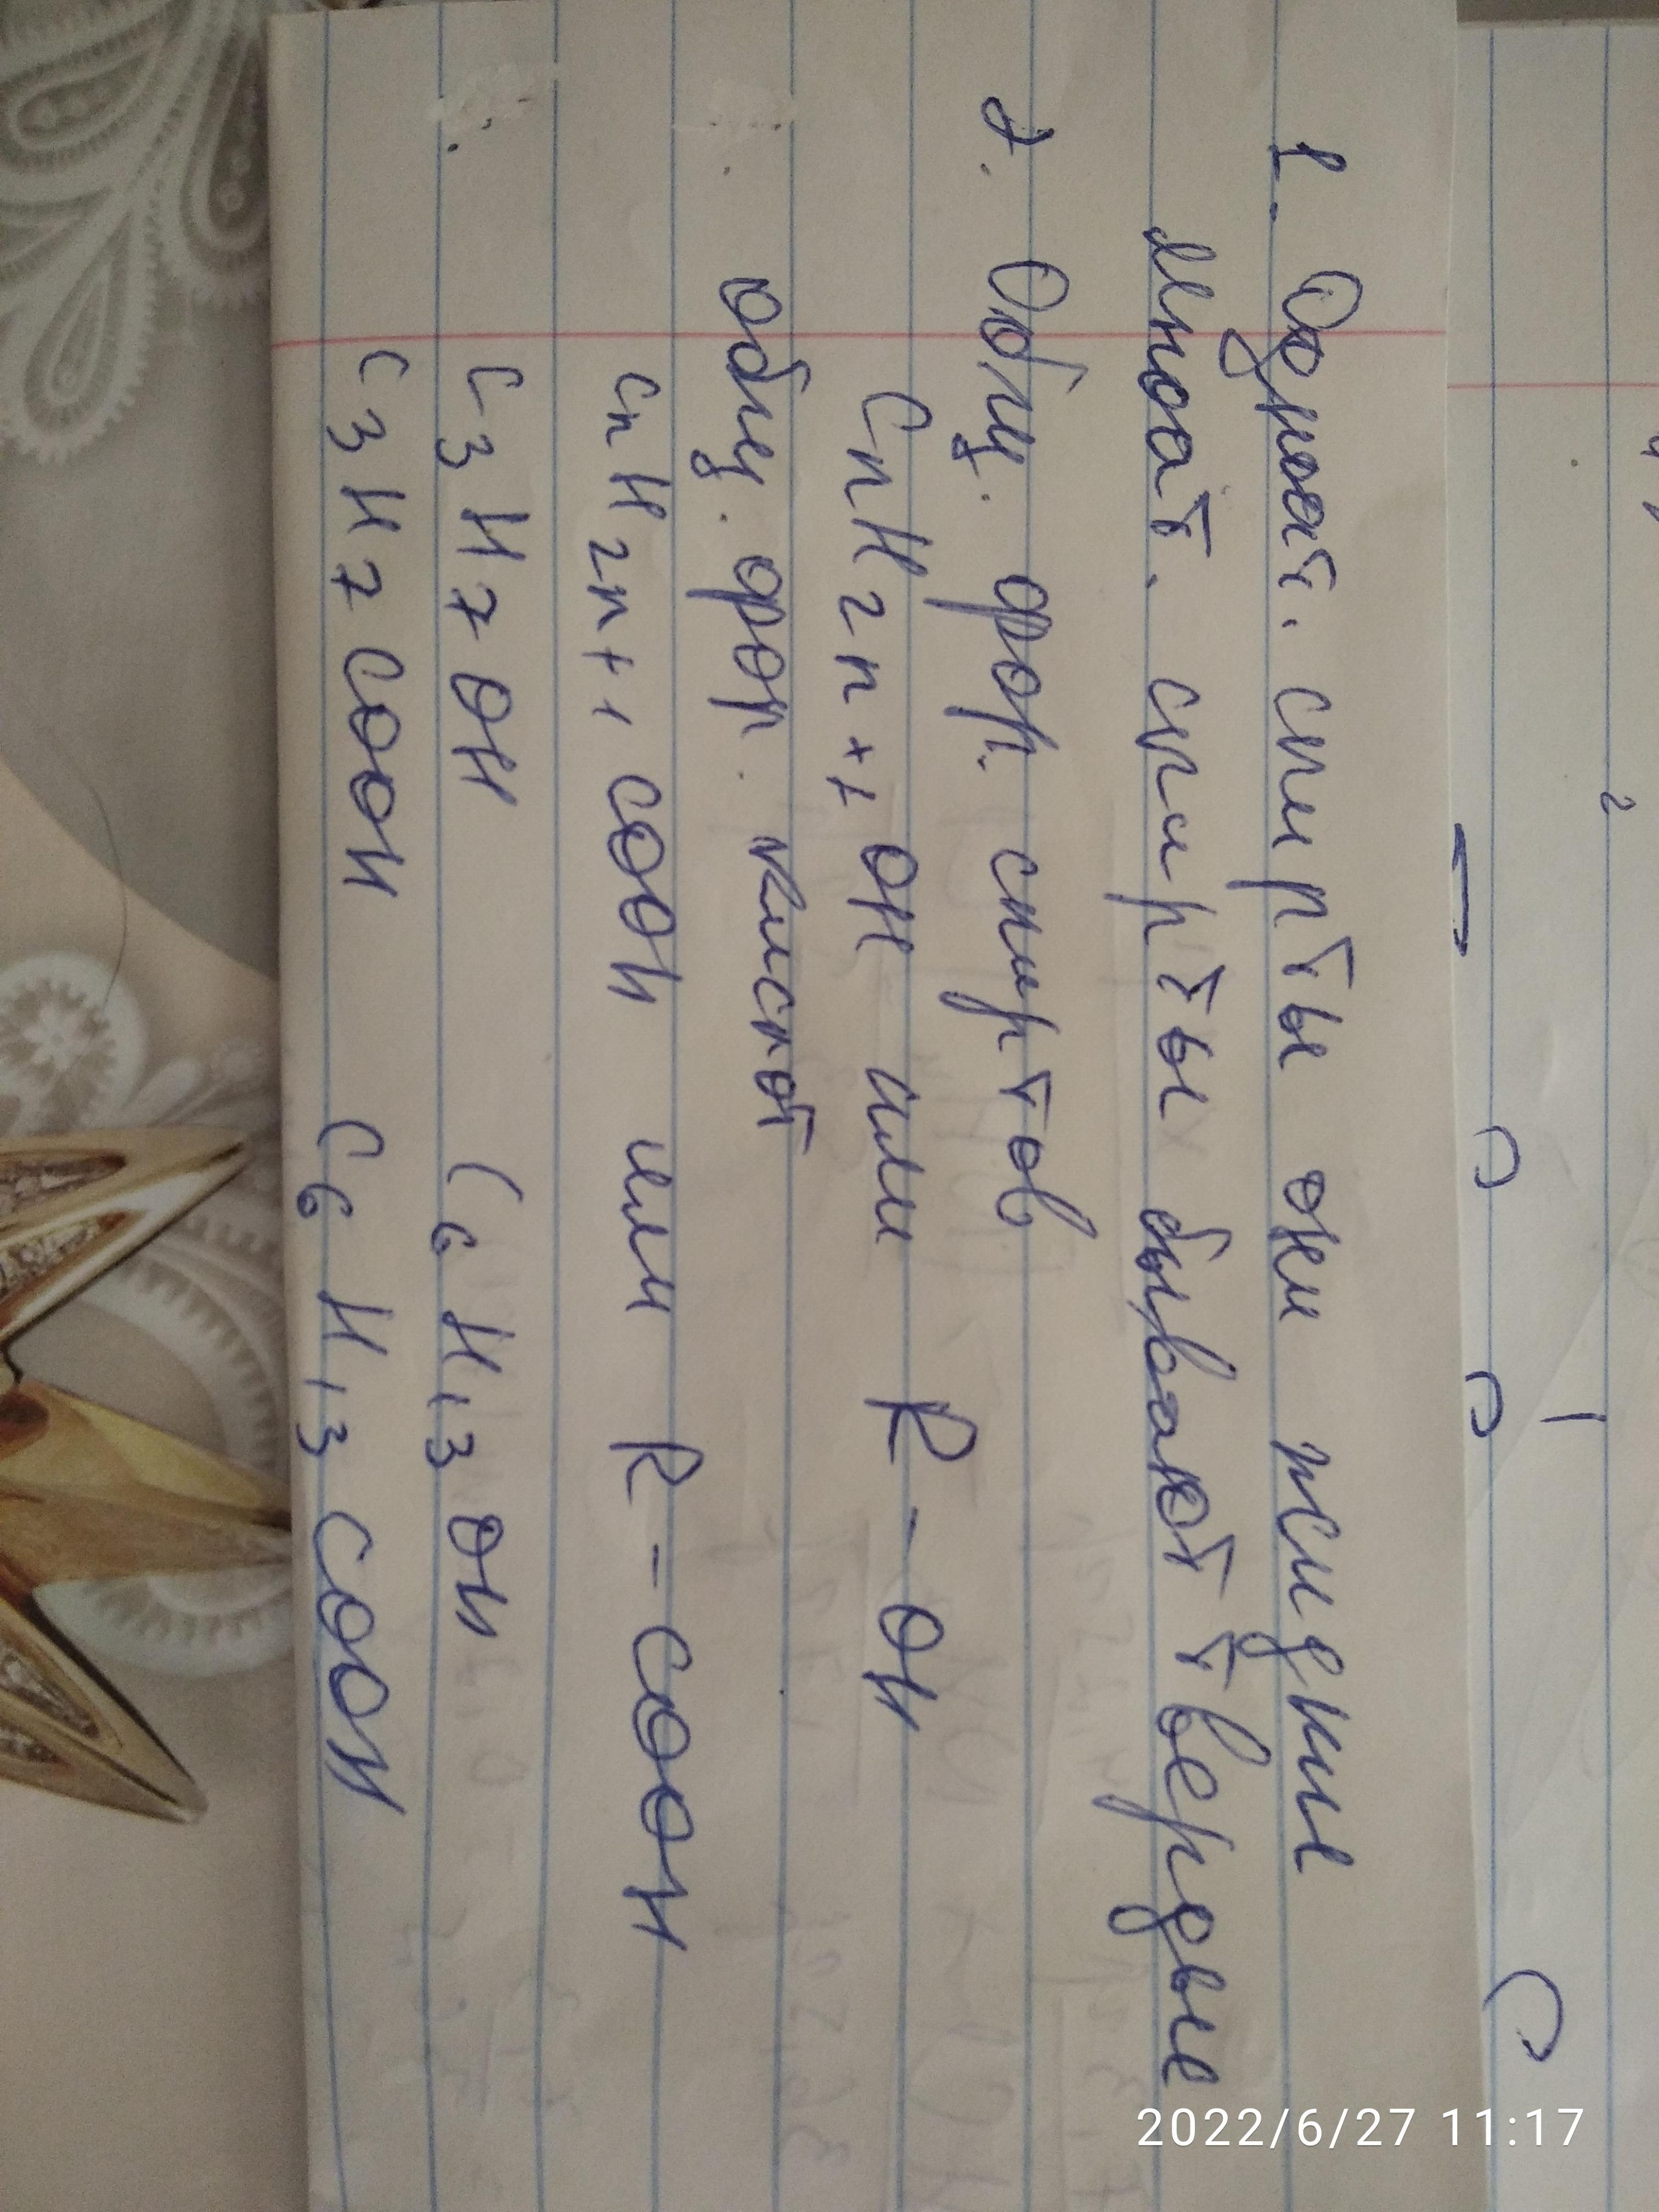 1. Одноат. спирты они жидкие
мноат. спирты бывают твердые
2. Общ. фор. спиртов
CnH2n+1 OH или R-OH
общ. фор. кислот
CnH2n+1 COOH или R-COOH
C3H7OH C6H13OH
C3H7COOH C6H13COOH
2022/6/27 11:17